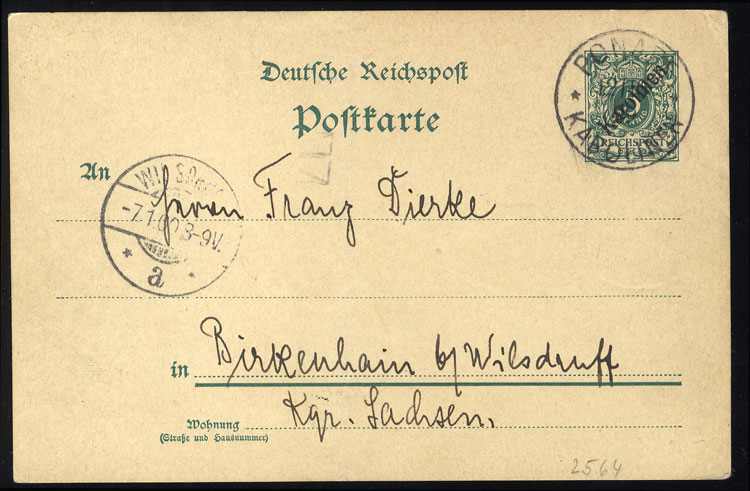 Deutsche Reichspost
Postkarte
PONAPE
KAROLINEN
Karolinen
5
REICHSPOST
An
WILSDRUFF
-7.1.00.8-9V.
a
Herrn Franz Dierke
in Birkenhain b/Wilsdruff
Kgr. Sachsen.
Wohnung
(Straße und Hausnummer)
2564